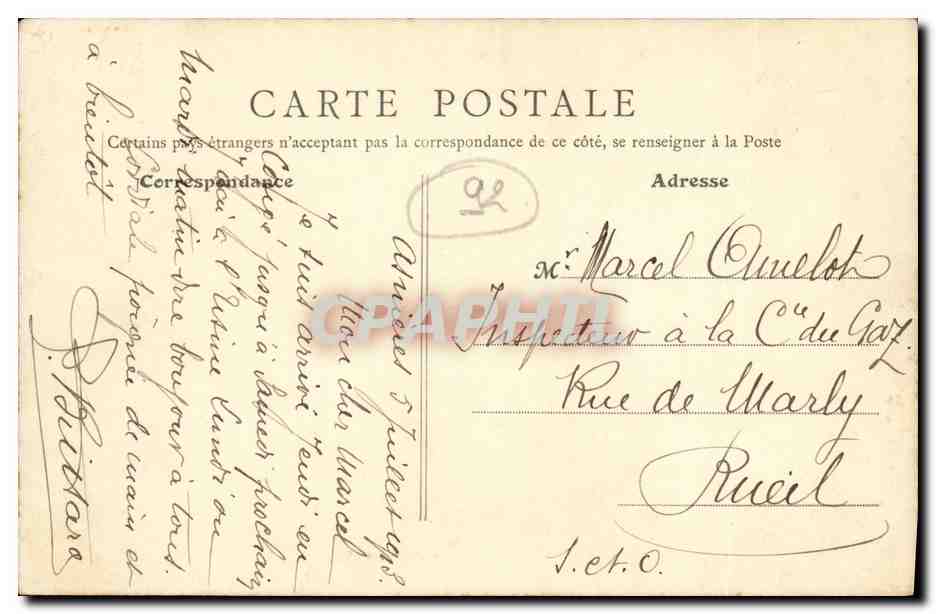 CARTE POSTALE
Certains pays étrangers n'acceptant pas la correspondance de ce côté, se renseigner à la Poste
Correspondance
Adresse
92
Asnières 5 Juillet 1908.
Mon cher Marcel
Je suis arrivé Jeudi en
Congé jusqu'à Samedi prochain
J'irai à l'Usine Lundi ou
Mardi matin dire bonjour à tous.
Cordiale poignée de main et
à bientôt
Mr. Marcel Amelot
Inspecteur à la Cie du Gaz.
Rue de Marly
Rueil
S. et. O.
CPAPHIL